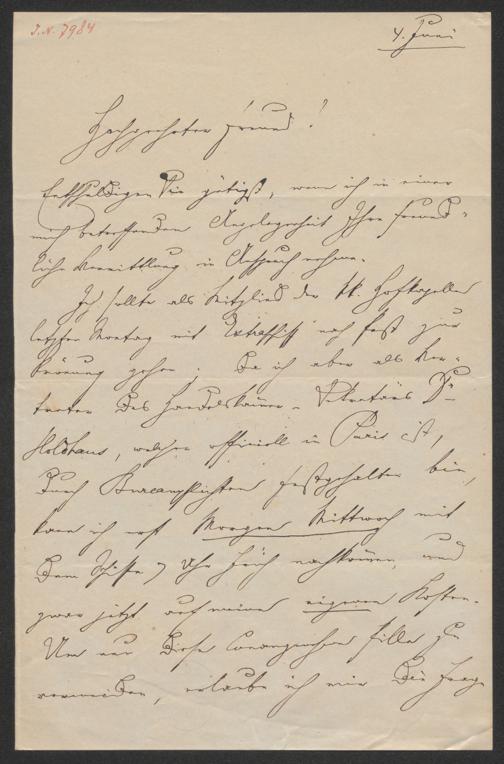 I.N. 7984
4. Juni
Hochgeehrter Freund!
Entschuldigen Sie gütigst, wenn ich in einer
mich betreffenden Angelegenheit Ihre freund-
liche Vermittlung in Anspruch nehme.
Ich sollte als Mitglied der kk. Hofkapelle
letzten Montag mit Extraschiff nach Pest zur
Krönung gehen; da ich aber als Ver-
treter des Handelskammer-Sekretärs Dr
Holdhaus, welcher offiziell in Paris ist,
durch Bureaupflichten festgehalten bin,
kann ich erst Morgen Mittwoch mit
dem Schiffe 7 Uhr Früh nachkommen, und
zwar jetzt auf meine eigenen Kosten.
Um nur diese unangenehme Fülle zu
vermeiden, erlaube ich mir die Frage